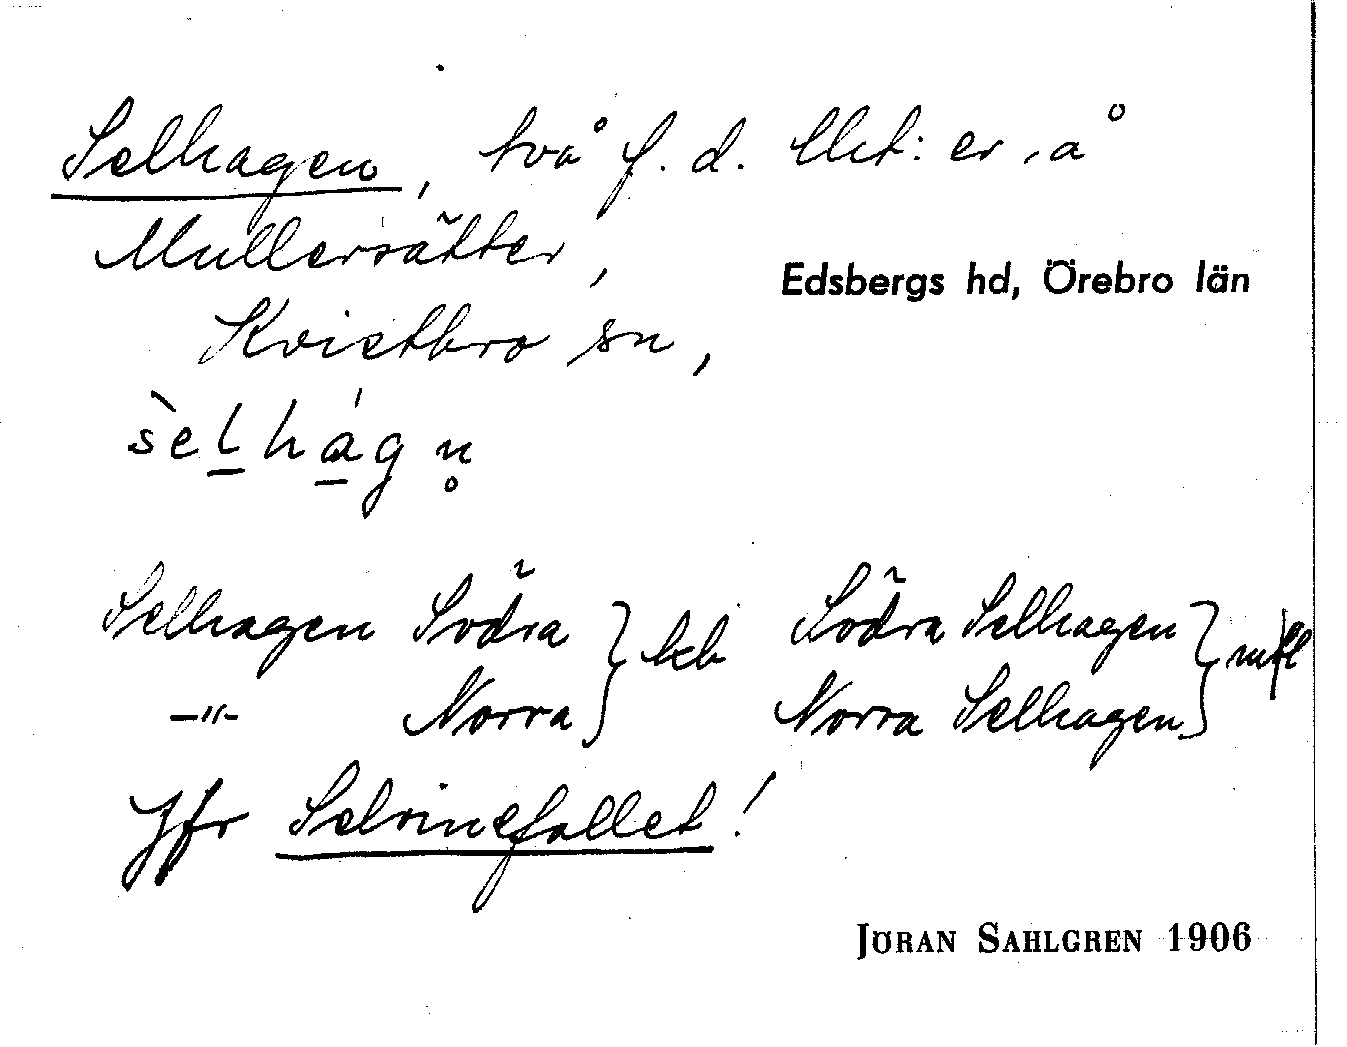 Selhagen, två f. d. lht:er å
Mullersätter,
Edsbergs hd, Örebro län
Kvistbro sn,
sèlhágn̥
Selhagen Södra } kb Södra Selhagen } mfl
—"— Norra Norra Selhagen
Jfr Selvinefallet!
JÖRAN SAHLGREN 1906